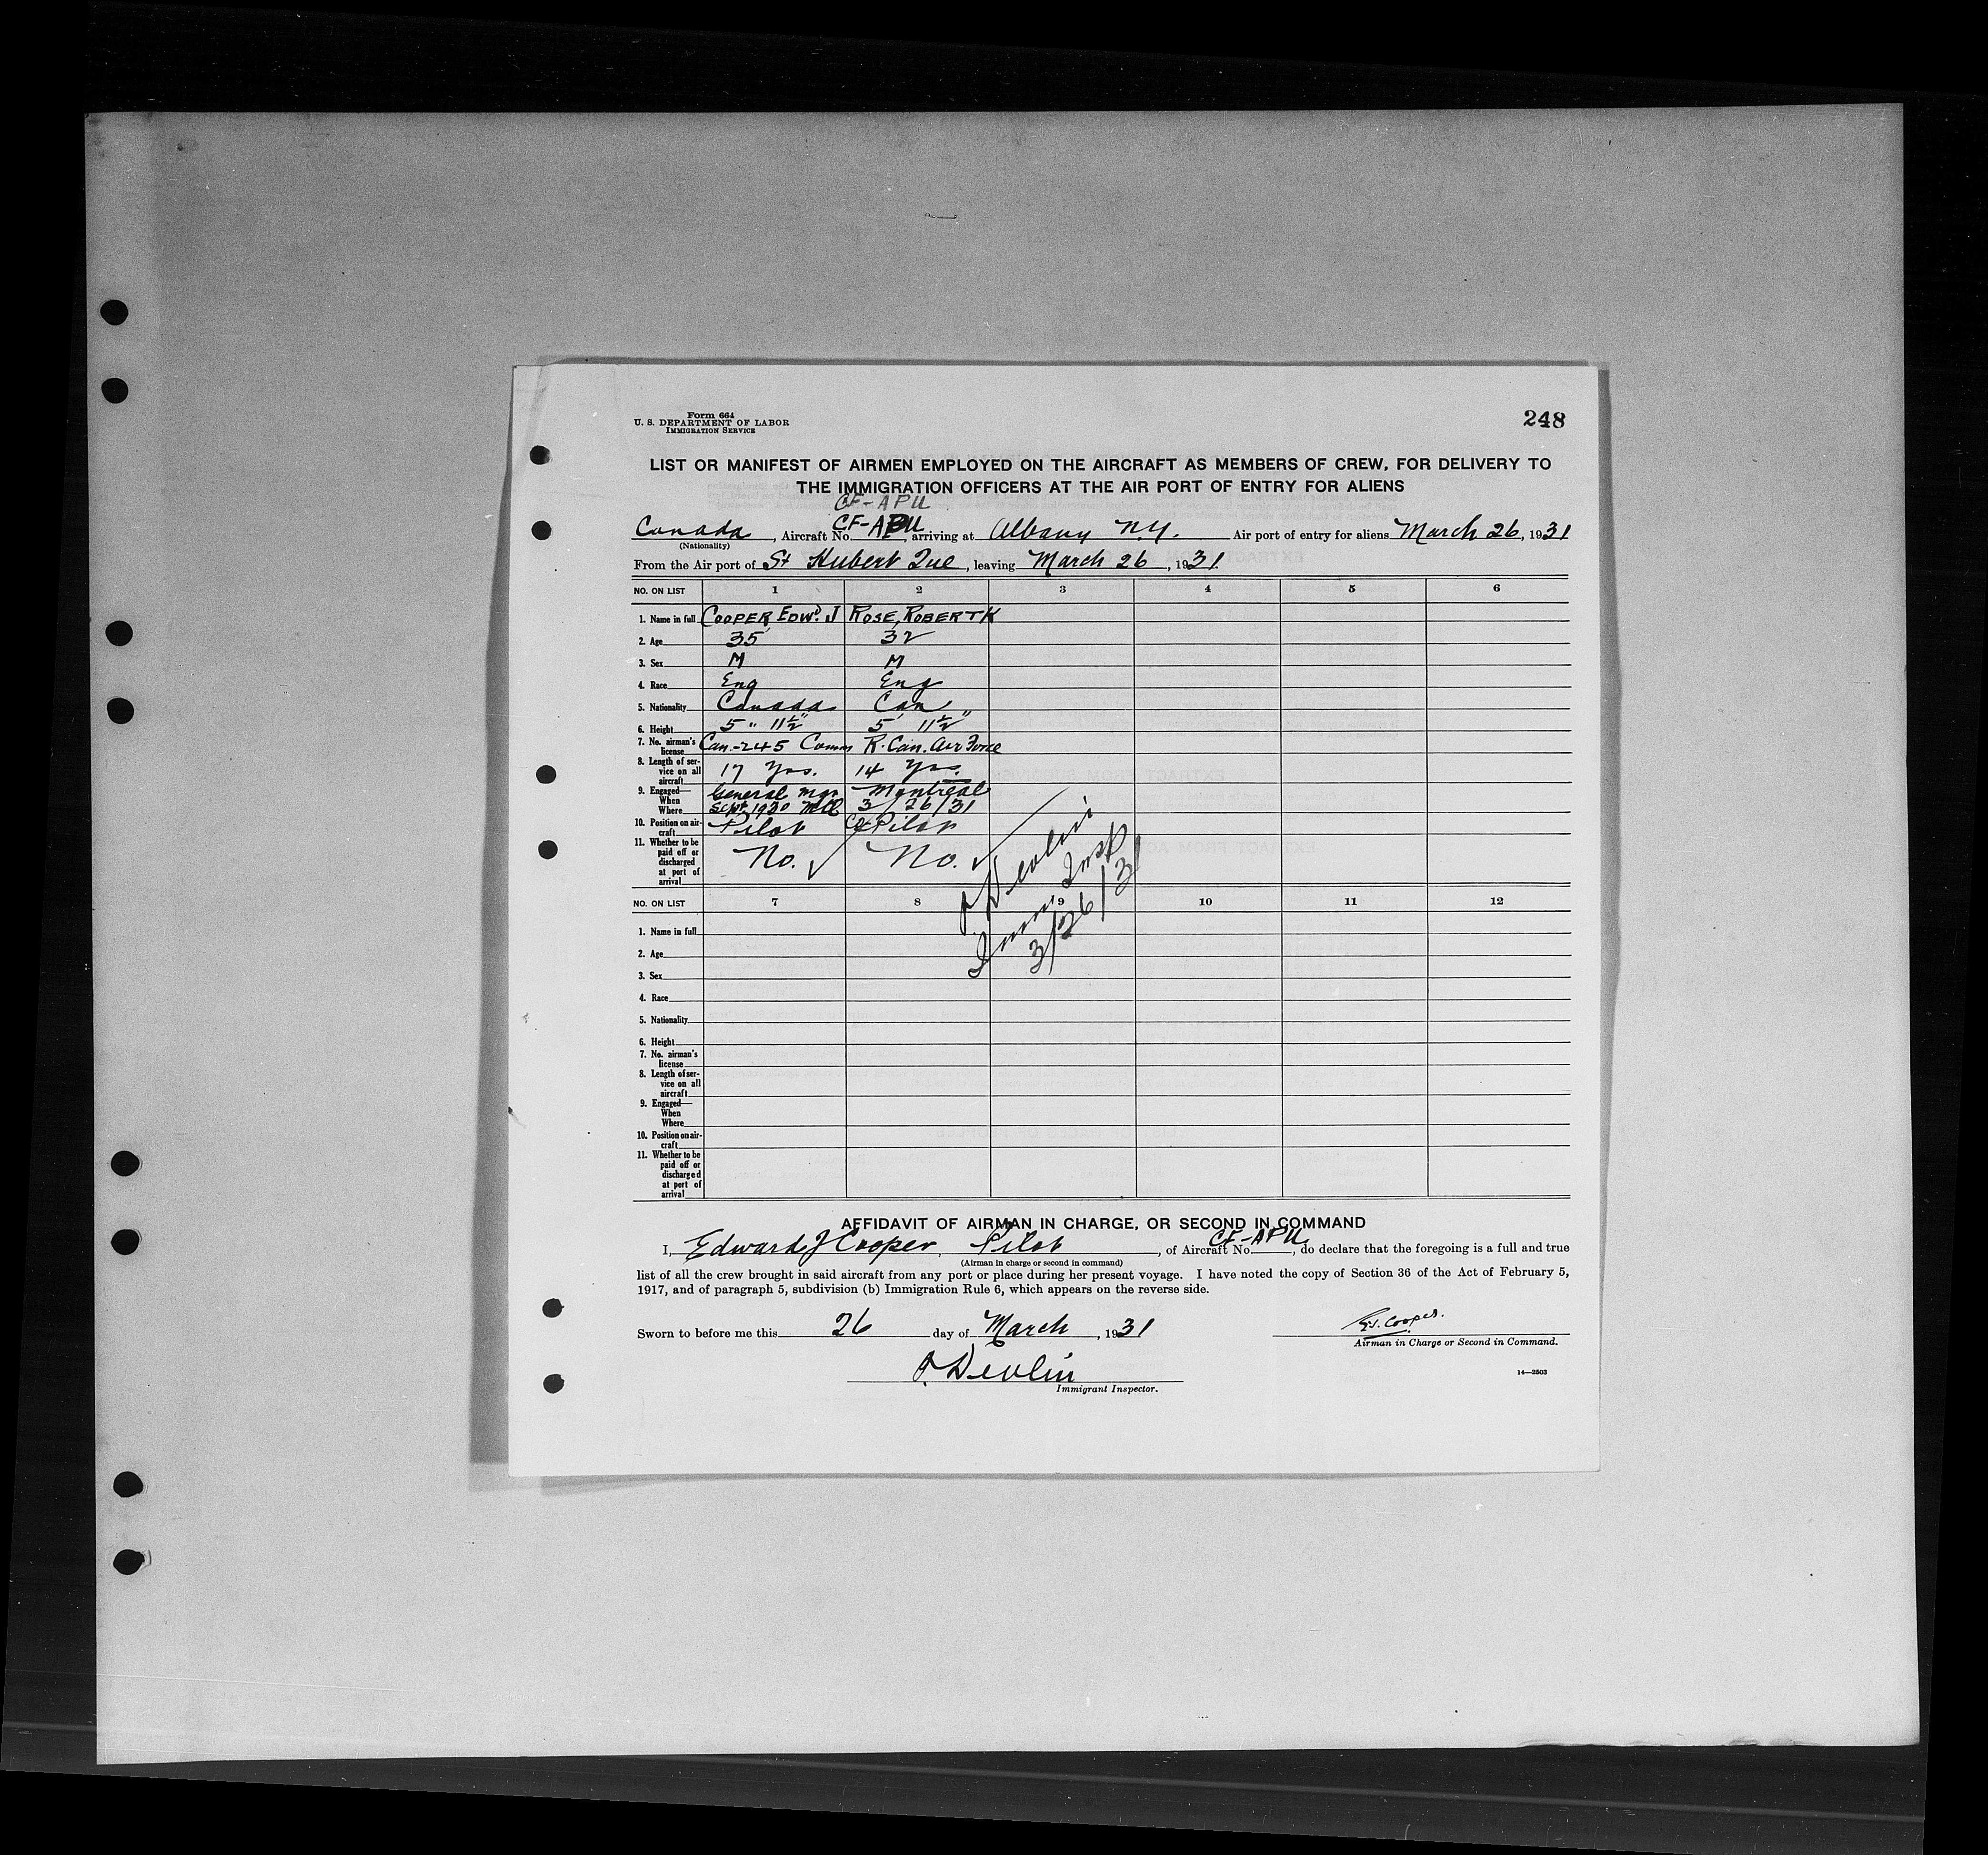 Form 664
U. S. DEPARTMENT OF LABOR
IMMIGRATION SERVICE
248
LIST OR MANIFEST OF AIRMEN EMPLOYED ON THE AIRCRAFT AS MEMBERS OF CREW, FOR DELIVERY TO
THE IMMIGRATION OFFICERS AT THE AIR PORT OF ENTRY FOR ALIENS
CF-APU
Canada, Aircraft No. CF-APU, arriving at Albany N.Y. Air port of entry for aliens March 26, 1931
(Nationality)
From the Air port of St Hubert Que, leaving March 26, 1931
NO. ON LIST 1 2 3 4 5 6
1. Name in full COOPER, EDWD. J ROSE, ROBERT K
2. Age 35 32
3. Sex M M
4. Race Eng Eng
5. Nationality Canada Can
6. Height 5" 11½" 5' 11½"
7. No. airman's license Can.-245 Comm R. Can. Air Force
8. Length of service on all aircraft 17 Yrs. 14 Yrs.
9. Engaged— When Where General Mgr Sept 1930 Mtl Montreal 3/26/31
10. Position on aircraft Pilot Co Pilot
11. Whether to be paid off or discharged at port of arrival No. ✓ No. ✓
Devlin
Imm. Insp
3/26/31
NO. ON LIST 7 8 9 10 11 12
1. Name in full
2. Age
3. Sex
4. Race
5. Nationality
6. Height
7. No. airman's license
8. Length of service on all aircraft
9. Engaged— When Where
10. Position on aircraft
11. Whether to be paid off or discharged at port of arrival
AFFIDAVIT OF AIRMAN IN CHARGE, OR SECOND IN COMMAND
I, Edward J Cooper, Pilot, of Aircraft No. CF-APU, do declare that the foregoing is a full and true
(Airman in charge or second in command)
list of all the crew brought in said aircraft from any port or place during her present voyage. I have noted the copy of Section 36 of the Act of February 5,
1917, and of paragraph 5, subdivision (b) Immigration Rule 6, which appears on the reverse side.
Sworn to before me this 26 day of March, 1931
E.J. Cooper.
Airman in Charge or Second in Command.
Devlin
Immigrant Inspector.
14—2503